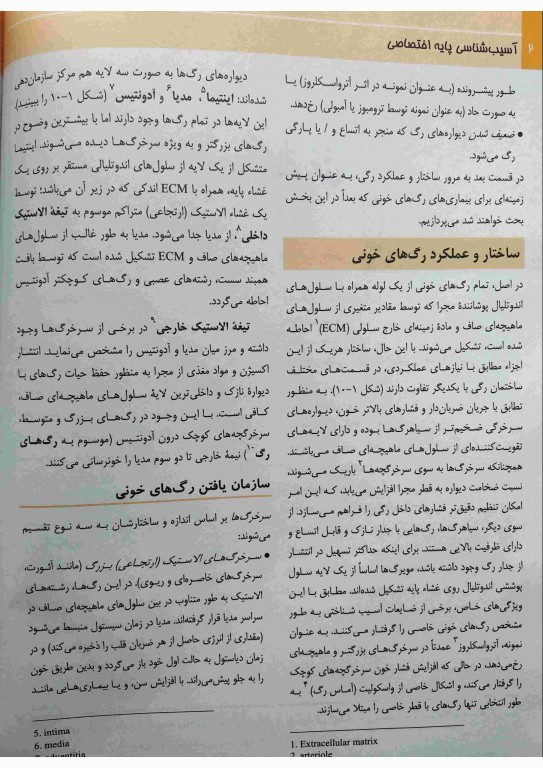 ۲ آسیب‌شناسی پایه اختصاصی
طور پیشرونده (به عنوان نمونه در اثر آترواسکلروز) یا
به صورت حاد (به عنوان نمونه توسط ترومبوز یا آمبولی) رخ‌دهد.
• ضعیف شدن دیواره‌های رگ که منجر به اتساع و / یا پارگی
رگ می‌شود.
در قسمت بعد به مرور ساختار و عملکرد رگی، به عنوان پیش
زمینه‌ای برای بیماری‌های رگ‌های خونی که بعداً در این بخش
بحث خواهند شد می‌پردازیم.
ساختار و عملکرد رگ‌های خونی
در اصل، تمام رگ‌های خونی از یک لوله همراه با سلول‌های
اندوتلیال پوشانندهٔ مجرا که توسط مقادیر متغیری از سلول‌های
ماهیچه‌ای صاف و مادهٔ زمینه‌ای خارج سلولی (ECM)۱ احاطه
شده است، تشکیل می‌شوند. با این حال، ساختار هریک از این
اجزاء مطابق با نیازهای عملکردی، در قسمت‌های مختلف
ساختمان رگی با یکدیگر تفاوت دارند (شکل ۱-۱۰). به منظور
تطابق با جریان ضربان‌دار و فشارهای بالاتر خون، دیواره‌های
سرخرگی ضخیم‌تر از سیاهرگ‌ها بوده و دارای لایه‌های
تقویت‌کننده‌ای از سلول‌های ماهیچه‌ای صاف می‌باشند.
همچنانکه سرخرگ‌ها به سوی سرخرگچه‌ها۲ باریک می‌شوند،
نسبت ضخامت دیواره به قطر مجرا افزایش می‌یابد، که این امر
امکان تنظیم دقیق‌تر فشارهای داخل رگی را فراهم می‌سازد. از
سوی دیگر، سیاهرگ‌ها، رگ‌هایی با جدار نازک و قابل اتساع و
دارای ظرفیت بالایی هستند. برای اینکه حداکثر تسهیل در انتشار
از جدار رگ وجود داشته باشد، مویرگ‌ها اساساً از یک لایه سلول
پوششی اندوتلیال روی غشاء پایه تشکیل شده‌اند. مطابق با این
ویژگی‌های خاص، برخی از ضایعات آسیب شناختی به طور
مشخص رگ‌های خونی خاصی را گرفتار می‌کنند. به عنوان
نمونه، آترواسکلروز۳ عمدتاً در سرخرگ‌های بزرگتر و ماهیچه‌ای
رخ‌می‌دهد، در حالی که افزایش فشار خون سرخرگچه‌های کوچک
را گرفتار می‌کند، و اشکال خاصی از واسکولیت (آماس رگ)۴ به
طور انتخابی تنها رگ‌های با قطر خاصی را مبتلا می‌سازند.
1. Extracellular matrix
2. arteriole
دیواره‌های رگ‌ها به صورت سه لایه هم مرکز سازمان‌دهی
شده‌اند: اینتیما۵، مدیا۶ و آدونتیس۷ (شکل ۱-۱۰ را ببینید).
این لایه‌ها در تمام رگ‌ها وجود دارند اما با بیشترین وضوح در
رگ‌های بزرگتر و به ویژه سرخرگ‌ها دیده می‌شوند. اینتیما
متشکل از یک لایه از سلول‌های اندوتلیالی مستقر بر روی یک
غشاء پایه، همراه با ECM اندکی که در زیر آن می‌باشد؛ توسط
یک غشاء الاستیک (ارتجاعی) متراکم موسوم به تیغهٔ الاستیک
داخلی۸، از مدیا جدا می‌شود. مدیا به طور غالب از سلول‌های
ماهیچه‌های صاف و ECM تشکیل شده است که توسط بافت
همبند سست، رشته‌های عصبی و رگ‌های کوچکتر آدونتیس
احاطه می‌گردد.
تیغهٔ الاستیک خارجی۹ در برخی از سرخرگ‌ها وجود
داشته و مرز میان مدیا و آدونتیس را مشخص می‌نماید. انتشار
اکسیژن و مواد مغذی از مجرا به منظور حفظ حیات رگ‌های با
دیوارهٔ نازک و داخلی‌ترین لایهٔ سلول‌های ماهیچه‌ای صاف،
کافی است. با این وجود در رگ‌های بزرگ و متوسط،
سرخرگچه‌های کوچک درون آدونتیس (موسوم به رگ‌های
رگ۱۰) نیمهٔ خارجی تا دو سوم مدیا را خونرسانی می‌کنند.
سازمان یافتن رگ‌های خونی
سرخرگ‌ها بر اساس اندازه و ساختارشان به سه نوع تقسیم
می‌شوند:
• سرخرگ‌های الاستیک (ارتجاعی) بزرگ (مانند آئورت،
سرخرگ‌های خاصره‌ای و ریوی). در این رگ‌ها، رشته‌های
الاستیک به طور متناوب در بین سلول‌های ماهیچه‌ای صاف در
سراسر مدیا قرار گرفته‌اند. مدیا در زمان سیستول منبسط می‌شود
(مقداری از انرژی حاصل از هر ضربان قلب را ذخیره می‌کند) و در
زمان دیاستول به حالت اول خود باز می‌گردد و بدین طریق خون
را به جلو پیش‌می‌راند. با افزایش سن، و یا بیماری‌هایی مانند
5. intima
6. media